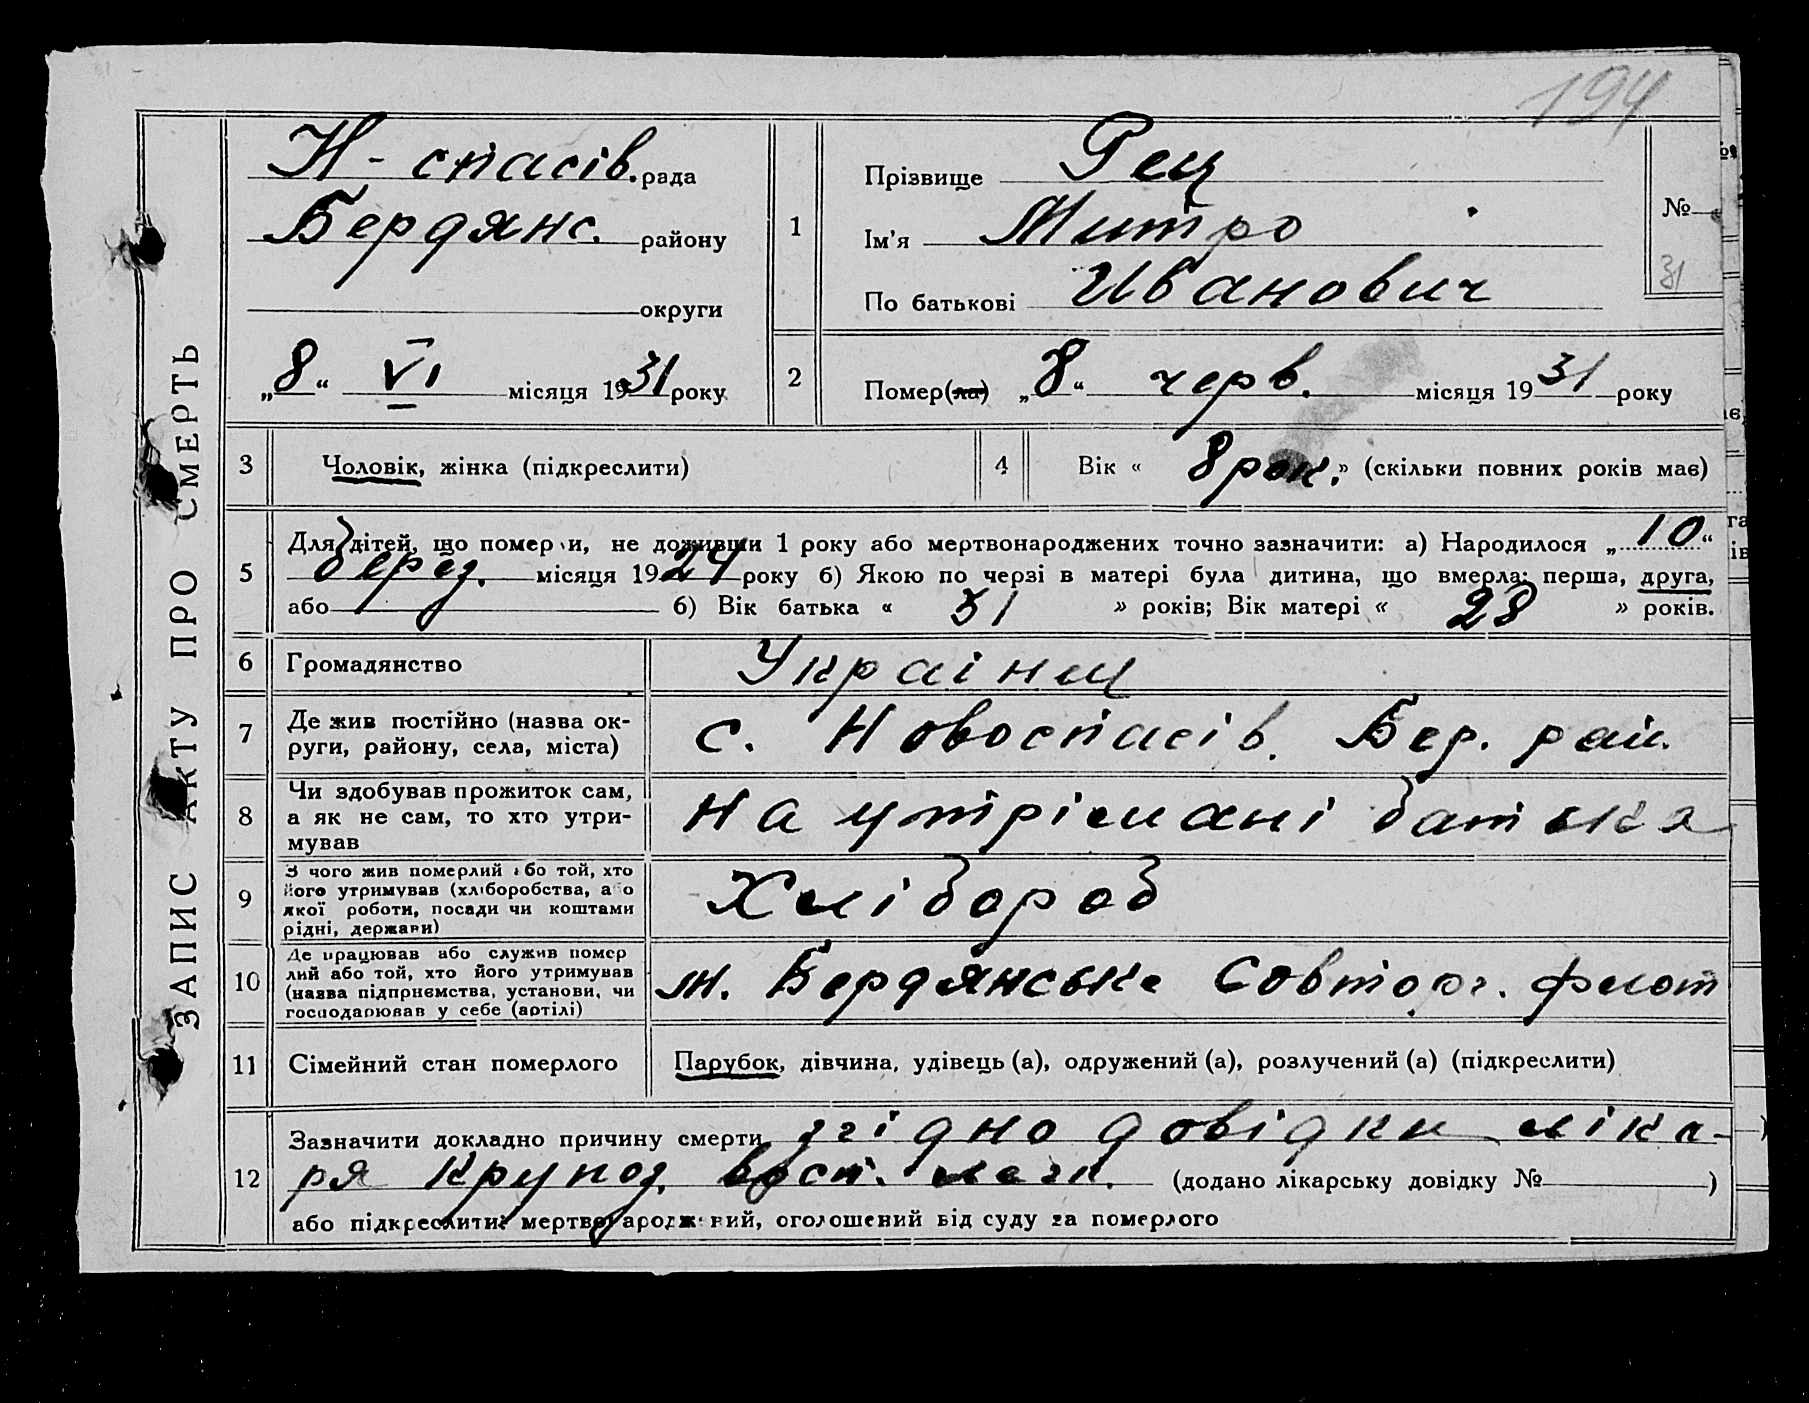 194
ЗАПИС АКТУ ПРО СМЕРТЬ
Н-спасів. рада
Бердянс. району
округи
„8“ VI місяця 1931 року
1
Прізвище Рец
Ім'я Митро
По батькові Иванович
№
31
2
Помер(ла) „8“ черв. місяця 1931 року
3 Чоловік, жінка (підкреслити)
4 Вік « 8 рок. » (скільки повних років має)
5
Для дітей, що померли, не доживши 1 року або мертвонароджених точно зазначити: а) Народилося „10“
берез. місяця 1924 року б) Якою по черзі в матері була дитина, що вмерла: перша, друга,
або б) Вік батька « 31 » років; Вік матері « 28 » років.
6 Громадянство Украінец
7 Де жив постійно (назва ок-
руги, району, села, міста) с. Новоспасів. Бер. рай.
8 Чи здобував прожиток сам,
а як не сам, то хто утри-
мував на утрімані батька
9 З чого жив померлий або той, хто
його утримував (хліборобства, або
якої роботи, посади чи коштами
рідні, держави) Хлібороб
10 Де працював або служив помер
лий або той, хто його утримував
(назва підприємства, установи, чи
господарював у себе (артілі) м. Бердянське Совторг. флот
11 Сімейний стан померлого Парубок, дівчина, удівець (а), одружений (а), розлучений (а) (підкреслити)
12 Зазначити докладно причину смерти згідно довідки ліка-
ря Крупоз. восп. легк. (додано лікарську довідку № )
або підкреслити: мертвонароджений, оголошений від суду за померлого